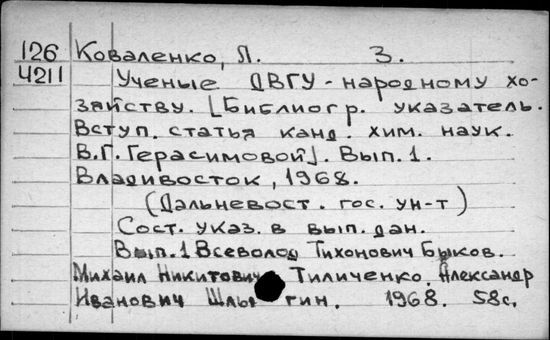 126 Коваленко, Л. З.
4211 Ученые ДВГУ - народному хо-
зяйству. [Библиогр. указатель.
Вступ. статья канд. хим. наук.
В.Г. Герасимовой]. Вып. 1.
Владивосток, 1968.
(Дальневост. гос. ун-т)
Сост. указ. в вып. дан.
Вып. 1 Всеволод Тихонович Быков.
Михаил Никитович Тиличенко. Александр
Иванович 1968. 58с.